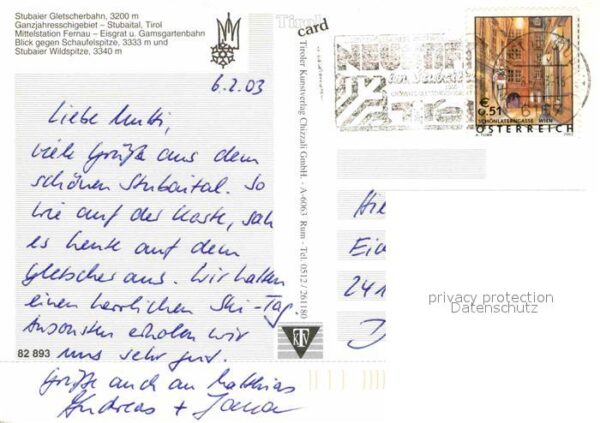 Stubaier Gletscherbahn, 3200 m
Ganzjahresschigebiet – Stubaital, Tirol
Mittelstation Fernau – Eisgrat u. Gamsgartenbahn
Blick gegen Schaufelspitze, 3333 m und
Stubaier Wildspitze, 3340 m
6.2.03
Liebe Mutti,
viele Grüße aus dem
schönen Stubaital. So
wie auf der Karte, sah
es heute auf dem
Gletscher aus. Wir hatten
einen herrlichen Ski-Tag.
Ansonsten erholen wir
uns sehr gut.
Grüße auch an Matthias
Andreas + Jana
82 893
Tirol
card
Tiroler Kunstverlag Chizzali GmbH. - A-6063 Rum - Tel. 0512 / 261180
KTV
NEUSTIFT
im Stubaital
€
0,51
SCHÖNLATERNGASSE WIEN
ÖSTERREICH
2002
Hie
Eic
241
D
privacy protection
Datenschutz